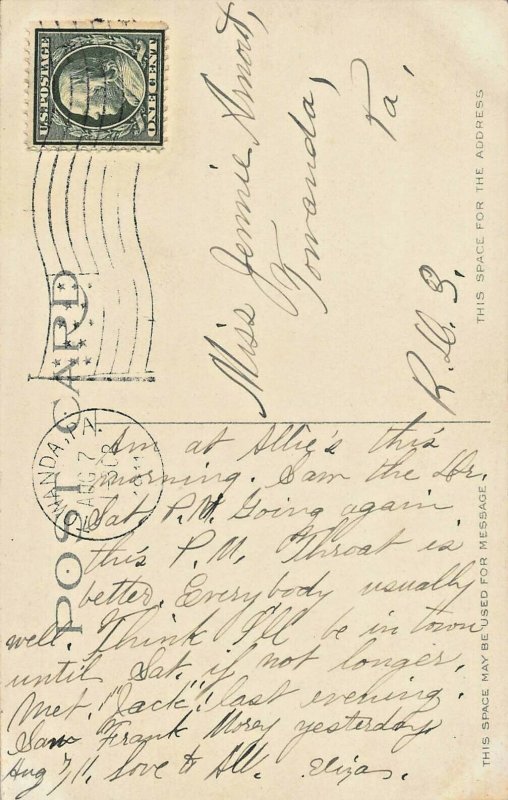 U.S. POSTAGE
ONE CENT
POST CARD
WANDA, PA.
AUG 7
THIS SPACE FOR THE ADDRESS
Miss Jennie Arnout,
Towanda,
Pa,
THIS SPACE MAY BE USED FOR MESSAGE
Am at Allie's this
morning. Saw the Dr.
Sat. P.M. Going again
this P.M. Throat is
better. Everybody usually
well. Think I'll be in town
until Sat. if not longer.
Met "Jack" last evening.
Saw Frank Morey yesterday
Aug 7/11. Love to All. Eliza.